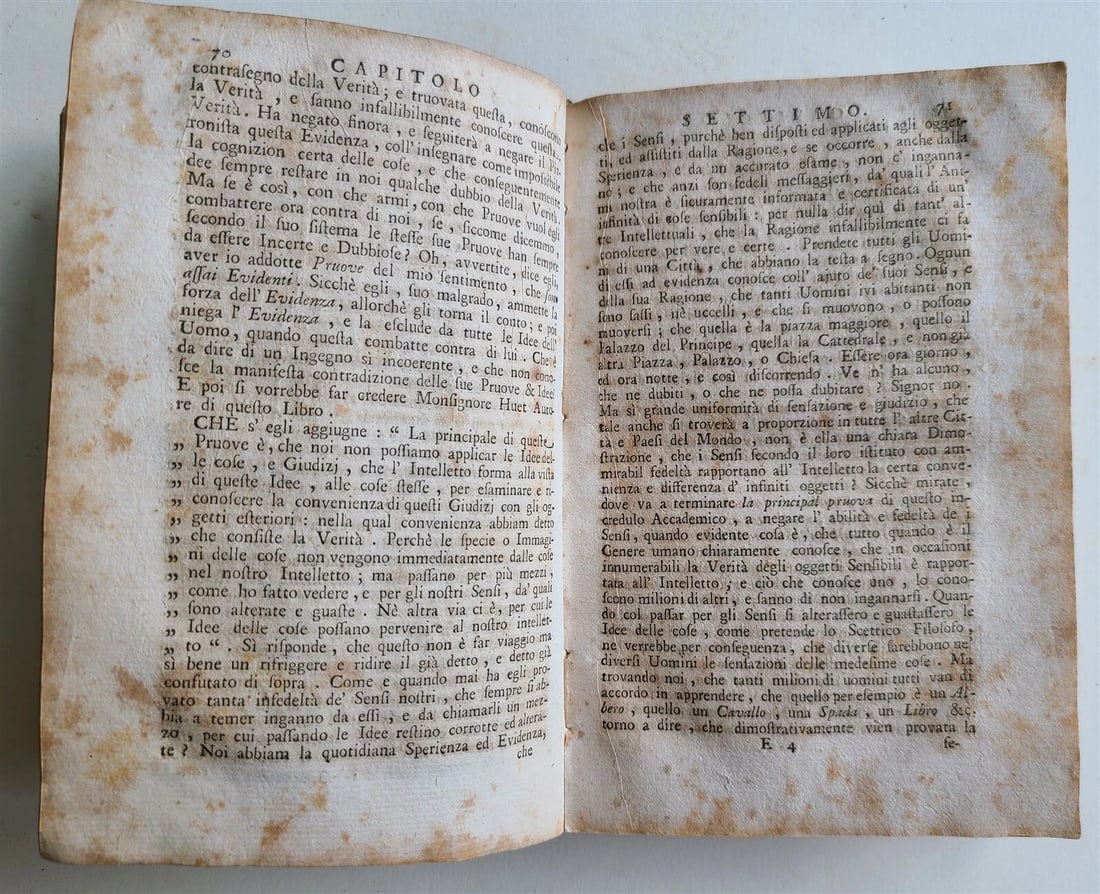 70
CAPITOLO
contraſegno della Verità; e truovata queſta, conoſcono
la Verità, e ſanno infallibilmente conoſcere queſta
Verità. Ha negato finora, e ſeguiterà a negare il Pir-
roniſta queſta Evidenza, coll' inſegnare come impoſſibile
la cognizion certa delle coſe, e che conſeguentemente
dee ſempre reſtare in noi qualche dubbio della Verità.
Ma ſe è così, con che armi, con che Pruove vuol egli
combattere ora contra di noi, ſe, ſiccome dicemmo,
ſecondo il ſuo ſiſtema le ſteſſe ſue Pruove han ſempre
da eſſere Incerte e Dubbioſe? Oh, avvertite, dice egli,
aver io addotte Pruove del mio ſentimento, che ſon
aſſai Evidenti. Sicchè egli, ſuo malgrado, ammette la
forza dell' Evidenza, allorchè gli torna il conto; e poi
niega l' Evidenza, e la eſclude da tutte le Idee dell'
Uomo, quando queſta combatte contra di lui. Che è
da dire di un Ingegno sì incoerente, e che non cono-
ſce la manifeſta contradizione delle ſue Pruove & Idee?
E poi ſi vorrebbe far credere Monſignore Huet Auto-
re di queſto Libro.
CHE s' egli aggiugne: “ La principale di queſte
„ Pruove è, che noi non poſſiamo applicare le Idee del-
„ le coſe, e Giudizj, che l' Intelletto forma alla viſta
„ di queſte Idee, alle coſe ſteſſe, per eſaminare e ri-
„ conoſcere la convenienza di queſti Giudizj con gli og-
„ getti eſteriori: nella qual convenienza abbiam detto
„ che conſiſte la Verità. Perchè le ſpecie o Immagi-
„ ni delle coſe non vengono immediatamente dalle coſe
„ nel noſtro Intelletto; ma paſſano per più mezzi,
„ come ho fatto vedere, e per gli noſtri Senſi, da' quali
„ ſono alterate e guaſte. Nè altra via ci è, per cui le
„ Idee delle coſe poſſano pervenire al noſtro intellet-
„ to “. Sì riſponde, che queſto non è far viaggio ma
sì bene un rifriggere e ridire il già detto, e detto già
confutato di ſopra. Come e quando mai ha egli pro-
vato tanta' infedeltà de' Senſi noſtri, che ſempre ſi ab-
bia a temer inganno da eſſi, e da chiamarli un mez-
zo, per cui paſſando le Idee reſtino corrotte ed altera-
te? Noi abbiam la quotidiana Sperienza ed Evidenza,
che
SETTIMO.
71
che i Senſi, purchè ben diſpoſti ed applicati agli ogget-
ti, ed aſſiſtiti dalla Ragione, e se occorre, anche dalla
Sperienza, e da un accurato eſame, non c' inganna-
no; e che anzi ſon fedeli meſſaggieri, da' quali l' Ani-
ma noſtra è ſicuramente informata e certificata di un'
infinità di coſe ſenſibili: per nulla dir quì di tant' al-
tre Intellettuali, che la Ragione infallibilmente ci fa
conoſcere per vere e certe. Prendete tutti gli Uomi-
ni di una Città, che abbiano la teſta a ſegno. Ognun
di eſſi ad evidenza conoſce coll' ajuto de' ſuoi Senſi, e
della ſua Ragione, che tanti Uomini ivi abitanti non
ſono ſaſſi, nè uccelli, e che ſi muovono, o poſſono
muoverſi; che quella è la piazza maggiore, quello il
Palazzo del Principe, quella la Cattedrale, e non già
altra Piazza, Palazzo, o Chieſa. Eſſere ora giorno,
ed ora notte, e così diſcorrendo. Ve n' ha alcuno,
che ne dubiti, o che ne poſſa dubitare? Signor no.
Ma sì grande uniformità di ſenſazione e giudizio, che
tale anche ſi troverà a proporzione in tutte l' altre Cit-
tà e Paeſi del Mondo, non è ella una chiara Dimo-
ſtrazione, che i Senſi ſecondo il loro iſtituto con am-
mirabil fedeltà rapportano all' Intelletto la certa conve-
nienza e differenza d' infiniti oggetti? Sicchè mirate,
dove va a terminare la principal pruova di queſto in-
credulo Accademico, a negare l' abilità e fedeltà de i
Senſi, quando evidente coſa è, che tutto quando è il
Genere umano chiaramente conoſce, che in occaſioni
innumerabili la Verità degli oggetti Senſibili è rappor-
tata all' Intelletto; e ciò che conoſce uno, lo cono-
ſcono milioni di altri, e ſanno di non ingannarſi. Quan-
do col paſſar per gli Senſi ſi alteraſſero e guaſtaſſero le
Idee delle coſe, come pretende lo Scettico Filoſofo,
ne verrebbe per conſeguenza, che diverſe ſarebbono ne'
diverſi Uomini le ſenſazioni delle medeſime coſe. Ma
trovando noi, che tanti milioni di uomini tutti van di
accordo in apprendere, che quello per eſempio è un Al-
bero, quello un Cavallo, una Spada, un Libro &c.
torno a dire, che dimoſtrativamente vien provata la
E 4
fe-